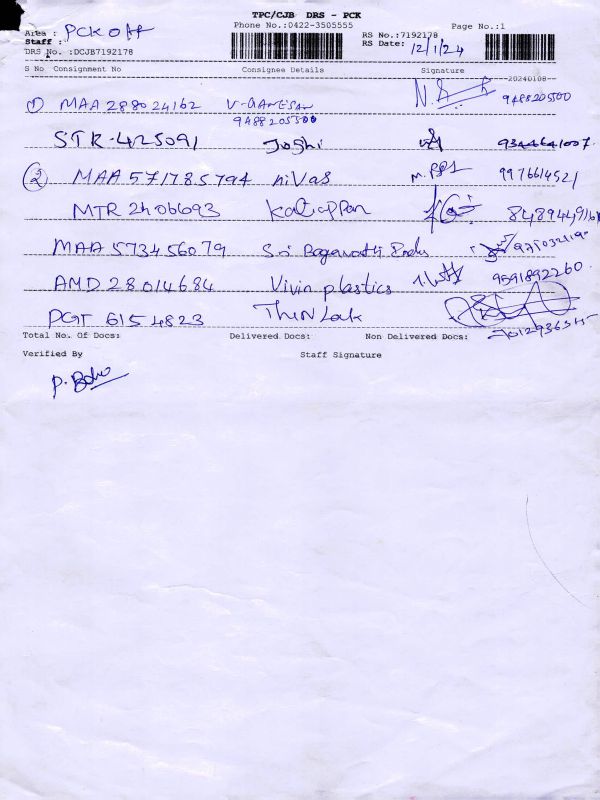 TPC/CJB DRS - PCK
Phone No.:0422-3505555 Page No.:1
Area : PCK Off RS No.:7192178
Staff : RS Date: 12/1/24
DRS No. :DCJB7192178
S No Consignment No Consignee Details Signature
--20240108--
① MAA 288024162 V-GANESAN 9488205500
9488205500
STR-425091 Joshi 9344641007
② MAA 571785794 niVas 9976614521
MTR 2406693 Kaliappan
MAA 573456079 Sri
AMD 28014684 Vivin plastics 9591892260
PGT 6154823
Total No. Of Docs: Delivered Docs: Non Delivered Docs:
Verified By Staff Signature